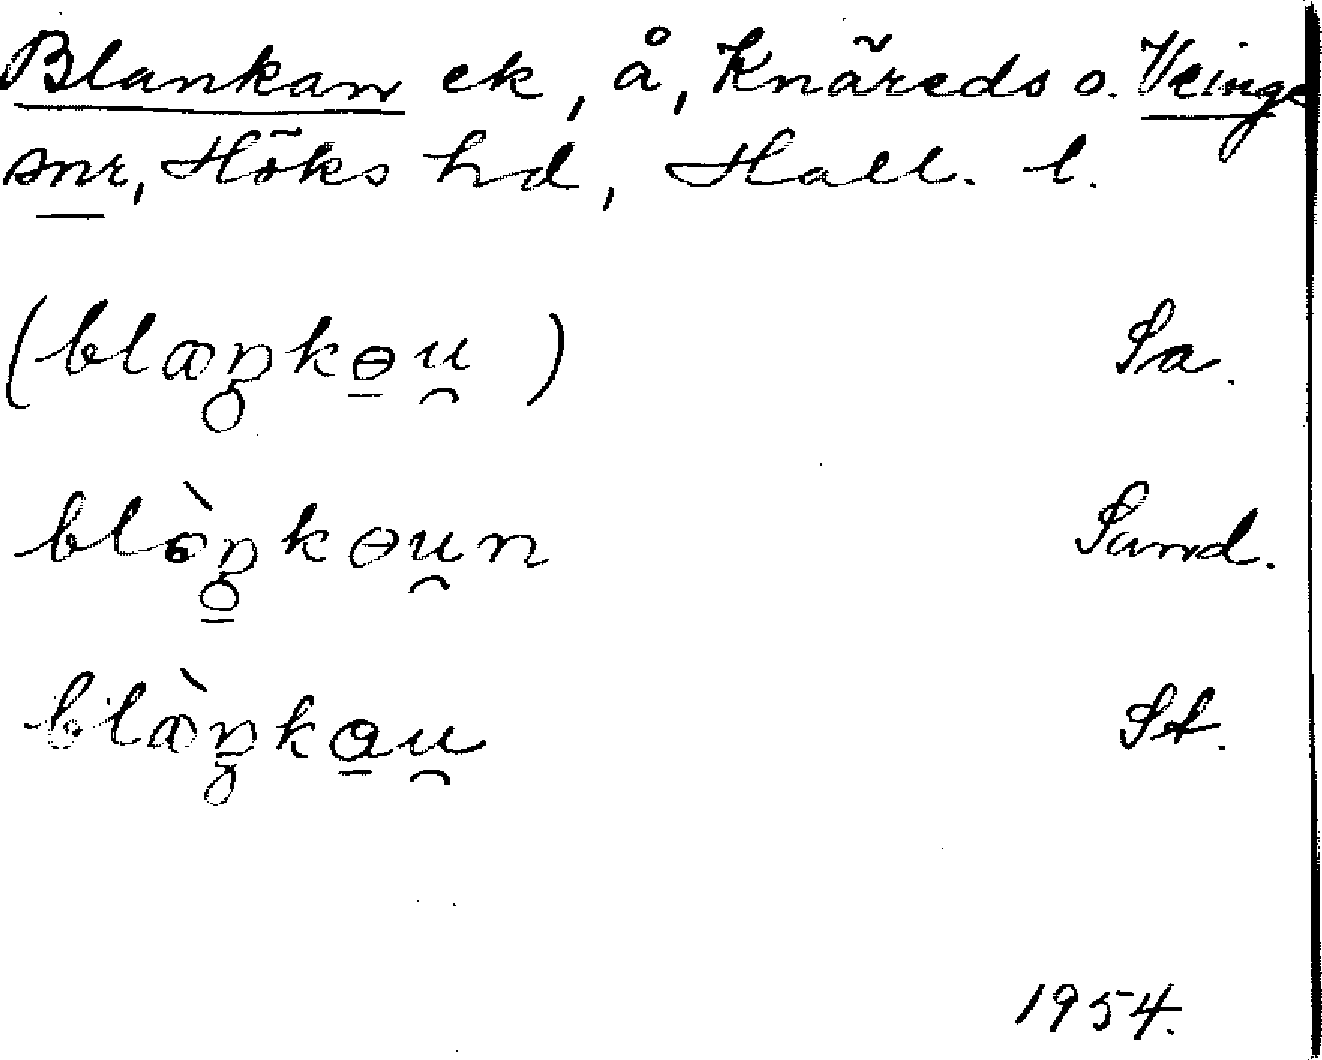 Blankan ek, å, Knäreds o. Veinge
snr, Höks hd, Hall. l.
(blaŋkɵu̯) Sa.
blòŋkɵu̯n Sand.
blàŋkau̯ St.
1954.